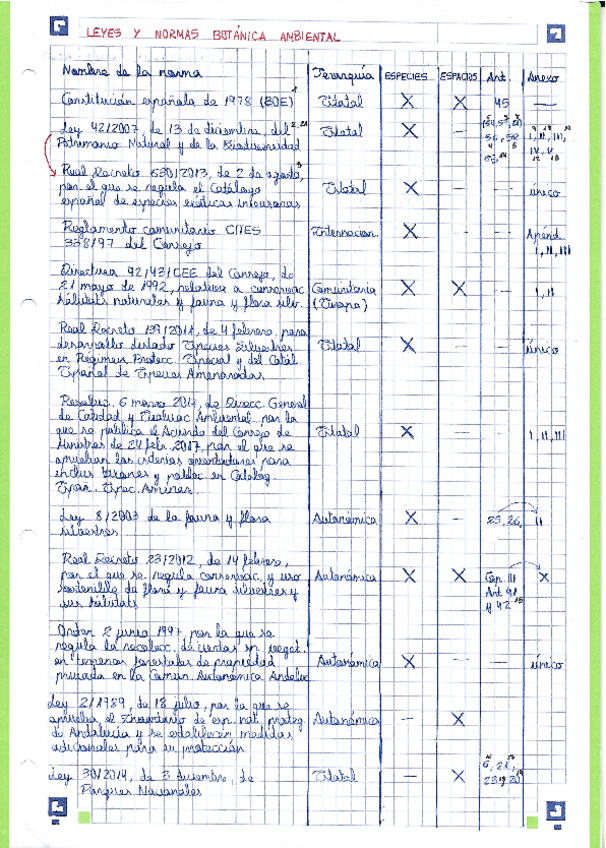 LEYES Y NORMAS BOTÁNICA AMBIENTAL
Nombre de la norma Jerarquía ESPECIES ESPACIOS Art. Anexo
Constitución española de 1978 (BOE) Estatal X X 45 —
Ley 42/2007, de 13 de diciembre, del Estatal X — 56, 58 I, II, III,
Patrimonio Natural y de la Biodiversidad IV, V
Real Decreto 630/2013, de 2 de agosto,
por el que se regula el Catálogo Estatal X — — único
español de especies exóticas invasoras
Reglamento comunitario CITES Internacion. X — Apénd.
338/97 del Consejo I, II, III
Directiva 92/43/CEE del Consejo, de
21 mayo de 1992, relativa a conservac. Comunitaria X X — I, II
hábitats naturales y fauna y flora silv. (Europa)
Real Decreto 139/2011, de 4 febrero, para
desarrollo listado Especies Silvestres Estatal X — — único
en Régimen Protecc. Especial y del Catál.
Español de Especies Amenazadas.
Resoluc. 6 marzo 2017, de Direcc. General
de Calidad y Evaluac. Ambiental por la
que se publica el Acuerdo del Consejo de Estatal X — — I, II, III
Ministros de 24 febr. 2017, por el que se
aprueban los criterios orientadores para
inclus. taxones y poblac. en Catálog.
Españ. Espec. Amenaz.
Ley 8/2003 de la fauna y flora Autonómica X — 25, 26, II
silvestres
Real Decreto 23/2012, de 14 febrero,
por el que se regula conservac. y uso Autonómica X X Cap. III X
sostenible de flora y fauna silvestres y Art 41
sus hábitats y 42
Orden 2 junio 1997, por la que se
regula la recolecc. de ciertas sp. veget.
en terrenos forestales de propiedad Autonómica X — — único
privada en la Comun. Autonómica Andaluc.
Ley 2/1989, de 18 julio, por la que se
aprueba el Inventario de esp. nat. proteg. Autonómica — X
de Andalucía y se establecen medidas
adicionales para su protección
Ley 30/2014, de 3 diciembre, de Estatal — X 6, 21,
Parques Nacionales